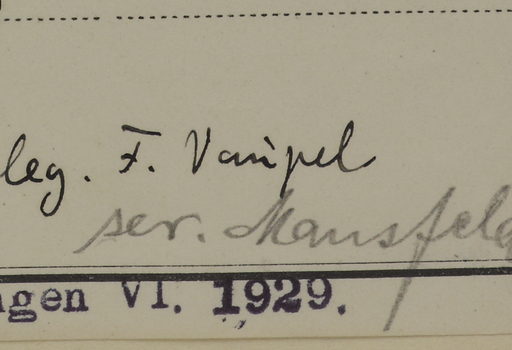 leg. F. Vaupel
ser. Mansfeld
ngen VI. 1929.